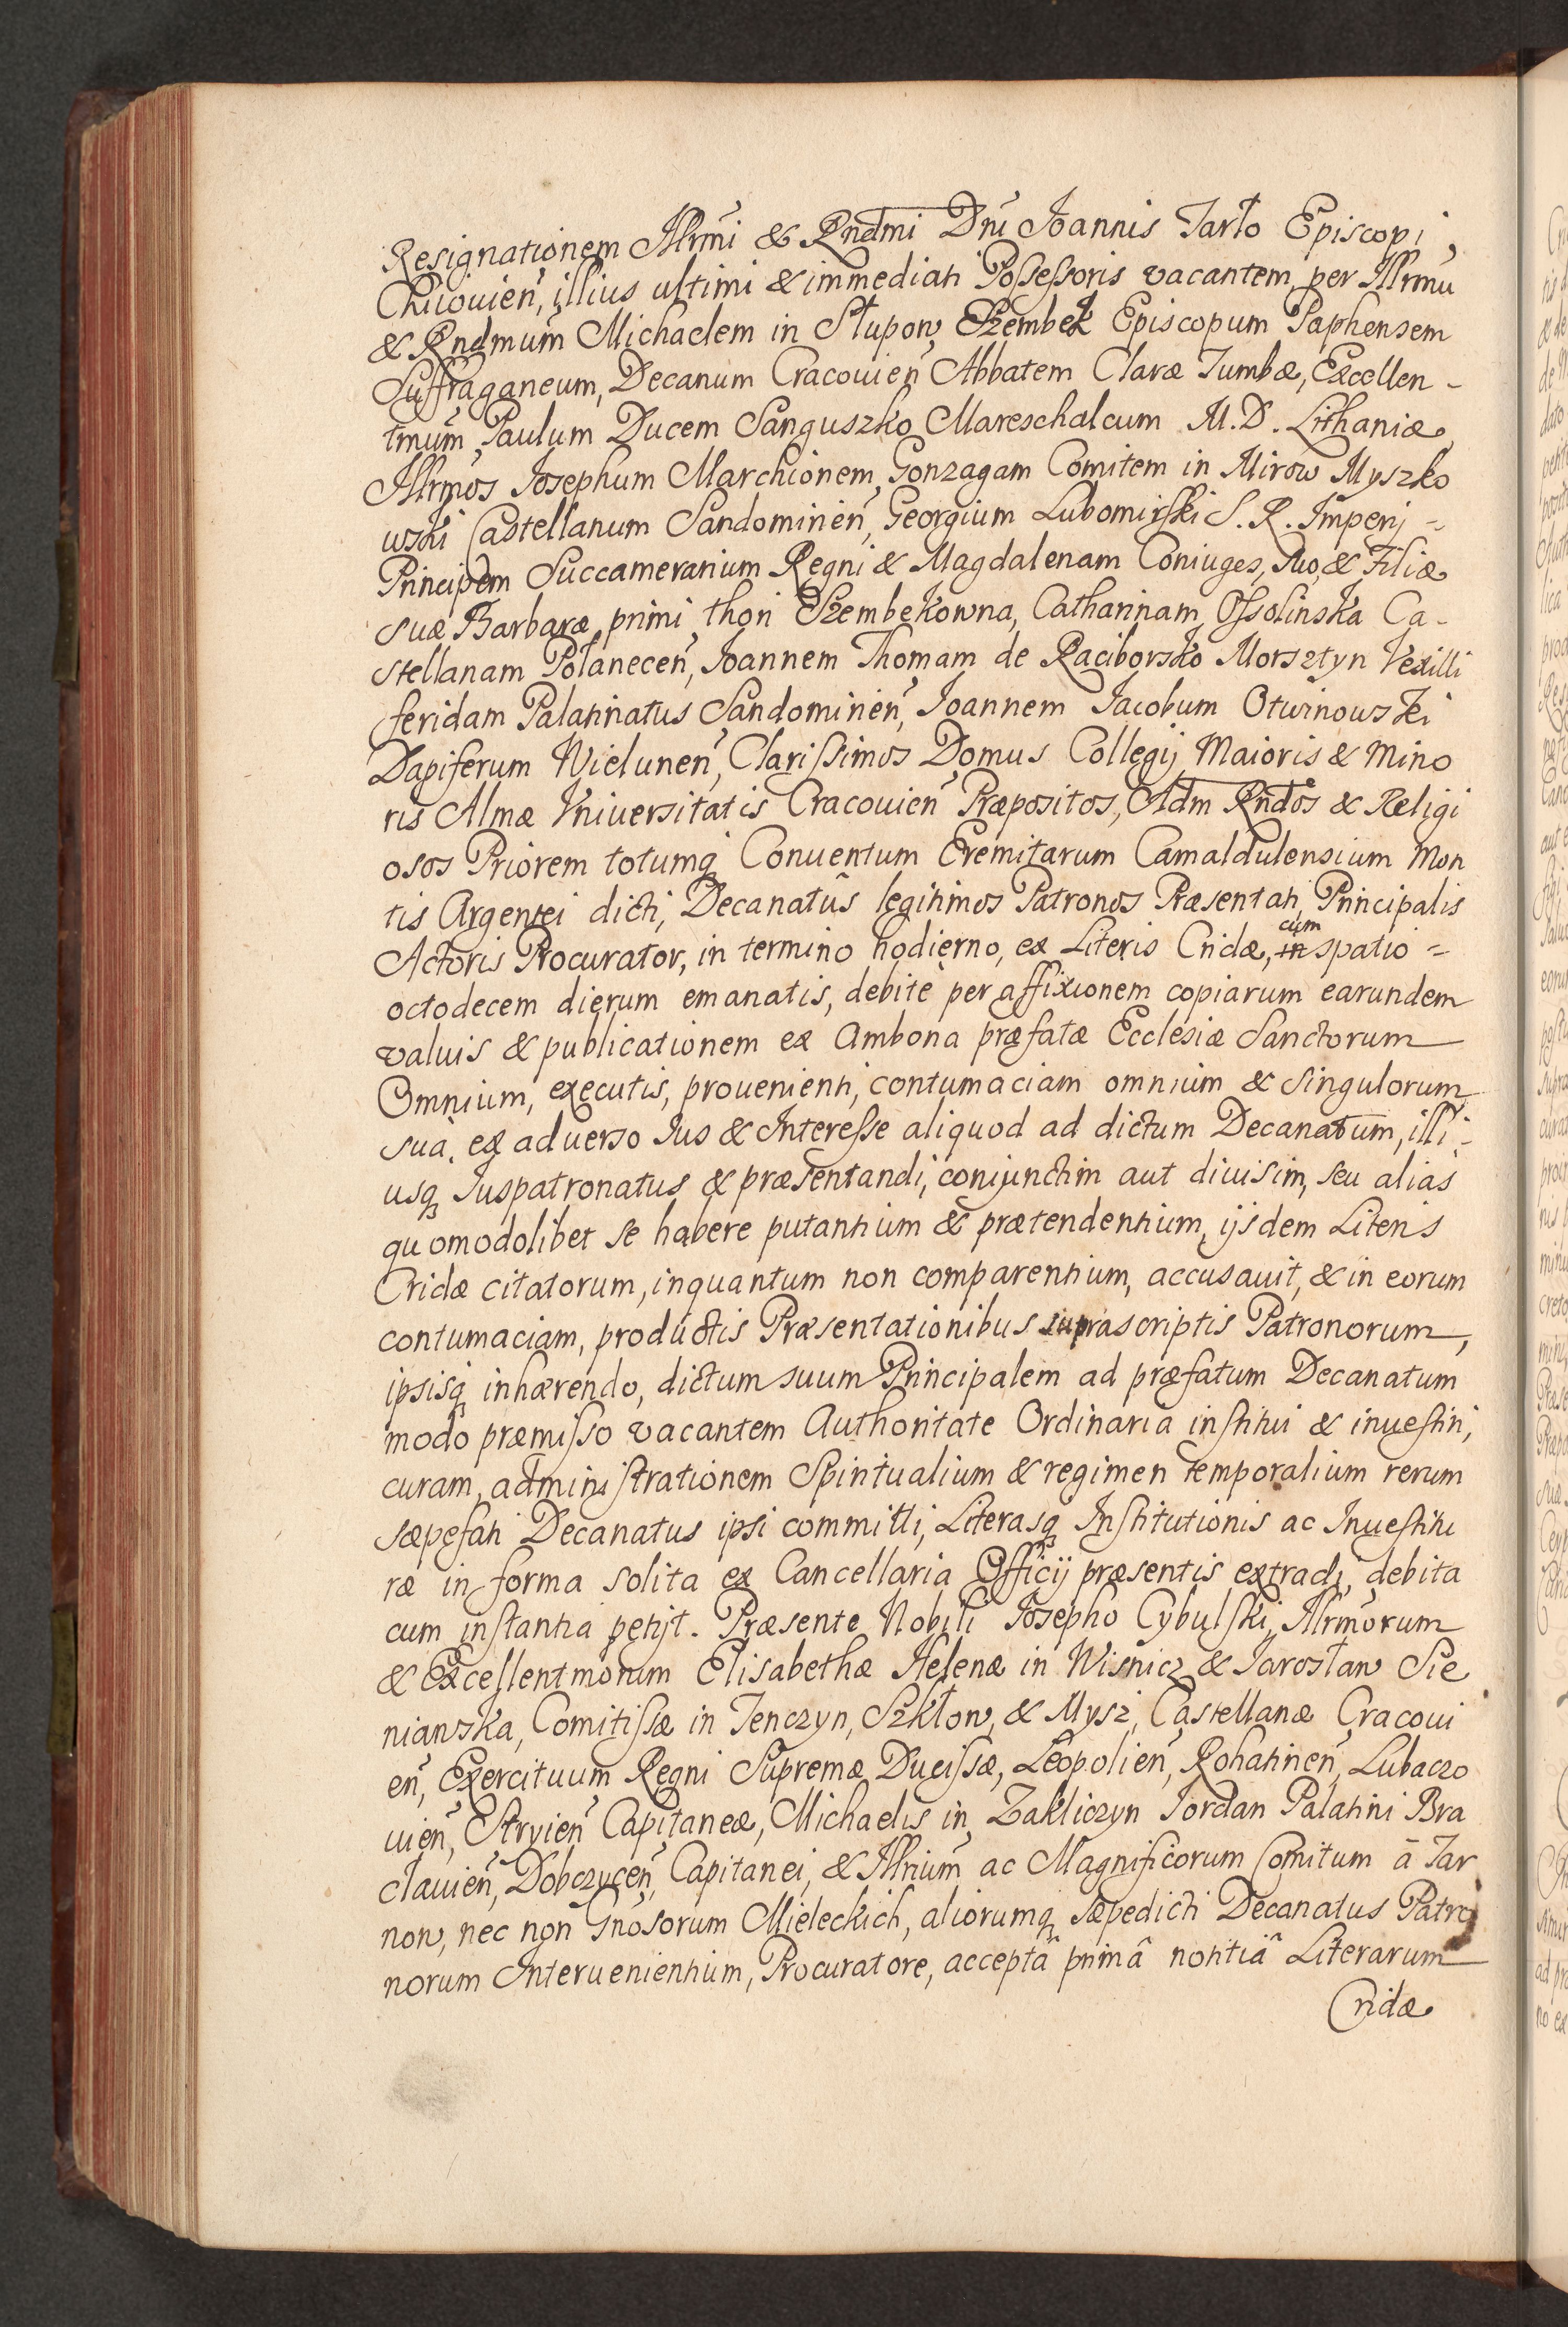 Resignationem Illrmi & Rndmi Dni Joannis Tarło Episcopi
Chiiouien, illius ultimi & immediati Possessoris vacantem, per Illrmu
& Rndmum Michaelem in Słupow Szembek Episcopum Paphensem
Suffraganeum, Decanum Cracouien Abbatem Claræ Tumbæ, Excellen-
tmum Paulum Ducem Sanguszko Mareschalcum M.D. Lithaniæ
Illrmos Josephum Marchionem Gonzagam Comitem in Mirow Myszko
wski Castellanum Sandominien, Georgium Lubomirski S. R. Imperij =
Principem Succamerarium Regni & Magdalenam Coniuges, suo, & Filiæ
suæ Barbaræ primi thori Szembekowna, Catharinam Ossolinska Ca-
stellanam Połanecen, Joannem Thomam de Raciborsko Morsztyn Vexilli
feridam Palatinatus Sandominien, Joannem Jacobum Otwinowski
Dapiferum Wielunen, Clarissimos Domus Collegij Maioris & Mino
ris Almæ Vniuersitatis Cracouien Præpositos, Adm Rndos & Religi
osos Priorem totumq Conuentum Eremitarum Camaldulensium Mon
tis Argentei dicti, Decanatus legitimos Patronos Præsentati, Principalis
Actoris Procurator, in termino hodierno, ex Literis Cridæ, cum in spatio =
octodecem dierum emanatis, debitè per affixionem copiarum earundem
valuis & publicationem ex Ambona præfatæ Ecclesiæ Sanctorum
Omnium, executis, prouenienti, contumaciam omnium & singulorum
suà ex aduerso Jus & Interesse aliquod ad dictum Decanatum, illi-
usq Juspatronatus & præsentandi, coniunctim aut diuisim, seu alias
quomodolibet se habere putantium & prætendentium, ijsdem Literis
Cridæ citatorum, inquantum non comparentium, accusauit, & in eorum
contumaciam, productis Præsentationibus suprascriptis Patronorum,
ipsisq inhærendo, dictum suum Principalem ad præfatum Decanatum
modo præmisso vacantem Authoritate Ordinaria institui & inuestiri,
curam, administrationem Spiritualium & regimen temporalium rerum
sæpefati Decanatus ipsi committi, Literasq Institutionis ac Inuestitu
ræ in forma solita ex Cancellaria Officij præsentis extradi, debita
cum instantia petijt. Præsente Nobili Josepho Cybulski, Illrmorum
& Excellentmorum Elisabethæ Helenæ in Wisnicz & Jarosław Sie
nianska, Comitissæ in Tenczyn, Szkłow, & Mysz, Castellanæ Cracoui
en, Exercituum Regni Supremæ Ducissæ, Leopolien, Rohatinen, Lubaczo
uien, Stryien Capitaneæ, Michaelis in Zakliczyn Jordan Palatini Bra
clauien, Dobczycen, Capitanei, & Illrium ac Magnificorum Comitum à Tar
now, nec non Gnosorum Mieleckich, aliorumq sæpedicti Decanatus Patro
norum Interuenientium, Procuratore, acceptâ primâ notitiâ Literarum
Cridæ